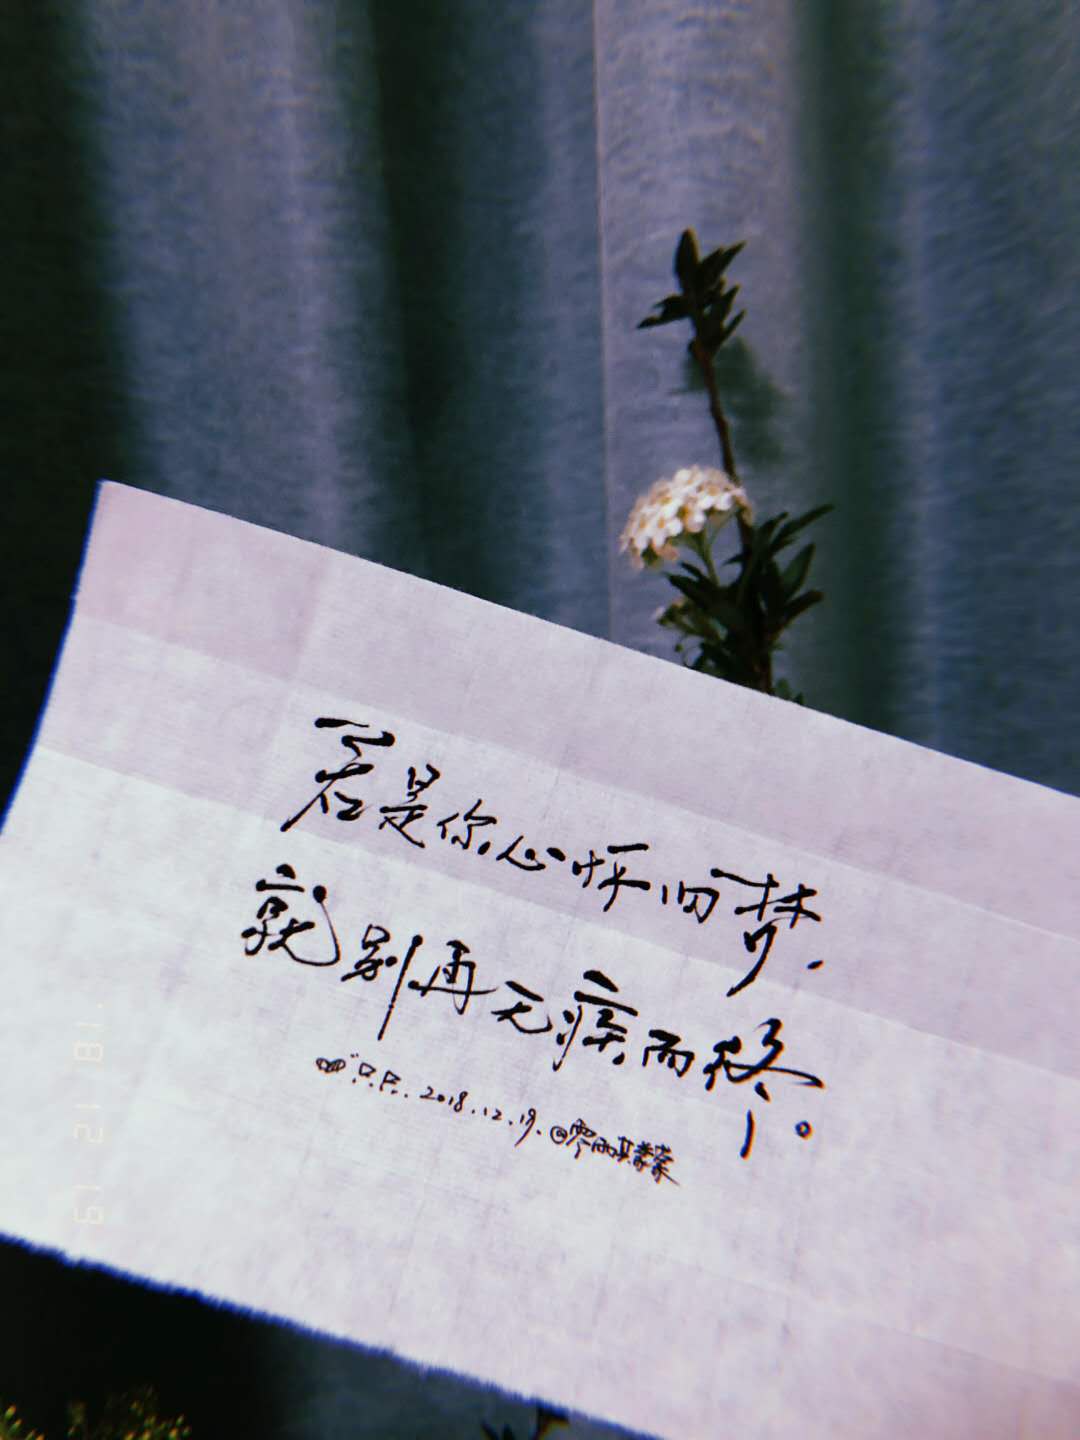 若是你心怀旧梦，
就别再无疾而终。
只只. 2018.12.19. @零雨其蒙蒙
'18 12 19